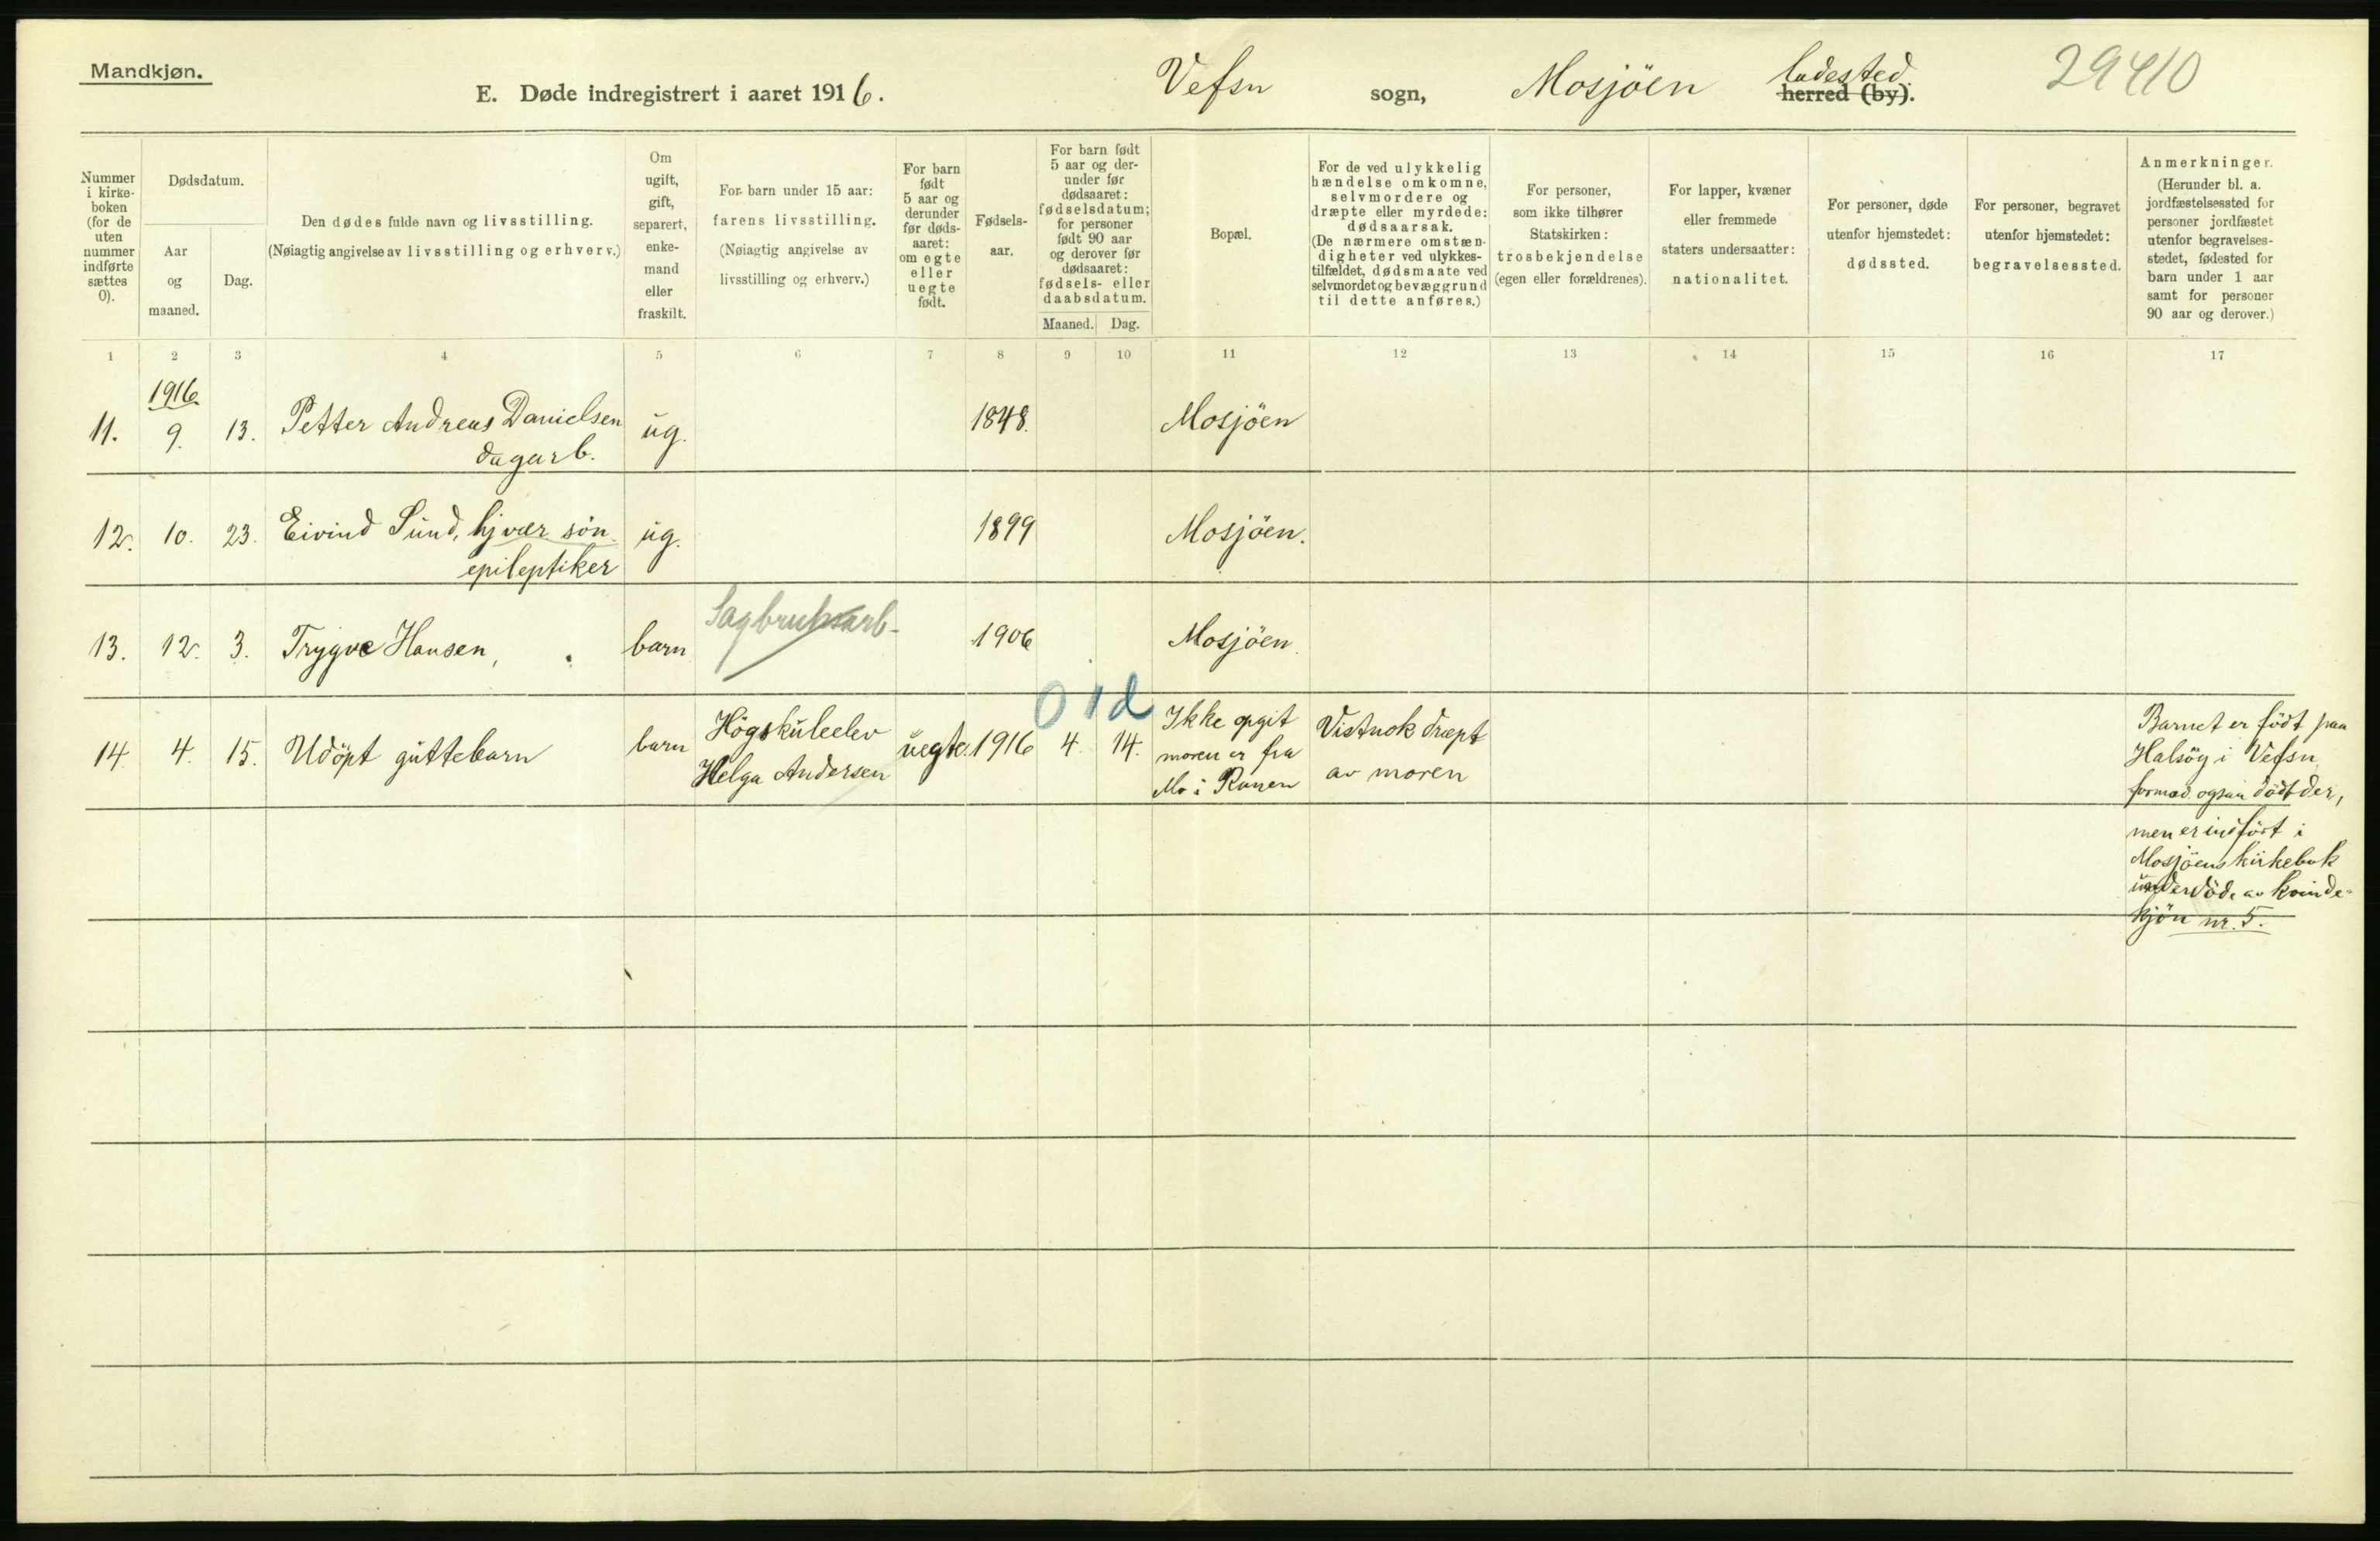 Mandkjøn.
E. Døde indregistrert i aaret 1916. Vefsn sogn, Mosjöen ladested. herred (by). 29410
Nummer
i kirke-
boken
(for de
uten
nummer
indførte
sættes
0).
Dødsdatum.
Aar
og
maaned.
Dag.
Den dødes fulde navn og livsstilling.
(Nøiagtig angivelse av livsstilling og erhverv.)
Om
ugift,
gift,
separert,
enke-
mand
eller
fraskilt.
For barn under 15 aar:
farens livsstilling.
(Nøiagtig angivelse av
livsstilling og erhverv.)
For barn
født
5 aar og
derunder
før døds-
aaret:
om egte
eller
uegte
født.
Fødsels-
aar.
For barn født
5 aar og der-
under før
dødsaaret:
fødselsdatum;
for personer
født 90 aar
og derover før
dødsaaret:
fødsels- eller
daabsdatum.
Maaned. Dag.
Bopæl.
For de ved ulykkelig
hændelse omkomne,
selvmordere og
dræpte eller myrdede:
dødsaarsak.
(De nærmere omstæn-
digheter ved ulykkes-
tilfældet, dødsmaate ved
selvmordet og bevæggrund
til dette anføres.)
For personer,
som ikke tilhører
Statskirken:
trosbekjendelse
(egen eller forældrenes).
For lapper, kvæner
eller fremmede
staters undersaatter:
nationalitet.
For personer, døde
utenfor hjemstedet:
dødssted.
For personer, begravet
utenfor hjemstedet:
begravelsessted.
Anmerkninger.
(Herunder bl. a.
jordfæstelsessted for
personer jordfæstet
utenfor begravelses-
stedet, fødested for
barn under 1 aar
samt for personer
90 aar og derover.)
1 2 3 4 5 6 7 8 9 10 11 12 13 14 15 16 17
1916
11. 9. 13. Petter Andreas Danielsen ug. 1848. Mosjöen
dagarb.
12. 10. 23. Eivind Sund, hjvær. sön. ug. 1899 Mosjöen.
epileptiker
13. 12. 3. Trygve Hansen, barn Sagbruksarb- 1906 Mosjöen.
0 1 d
14. 4. 15. Udöpt guttebarn barn Högskuleelev
Helga Andersen uegte. 1916 4. 14. Ikke opgit
moren er fra
Mo i Ranen
Vistnok dræpt
av moren
Barnet er födt paa
Halsöy i Vefsn,
formod. ogsaa död der,
men er indfört i
Mosjöens kirkebok
under döde av kvinde-
kjön nr. 5.